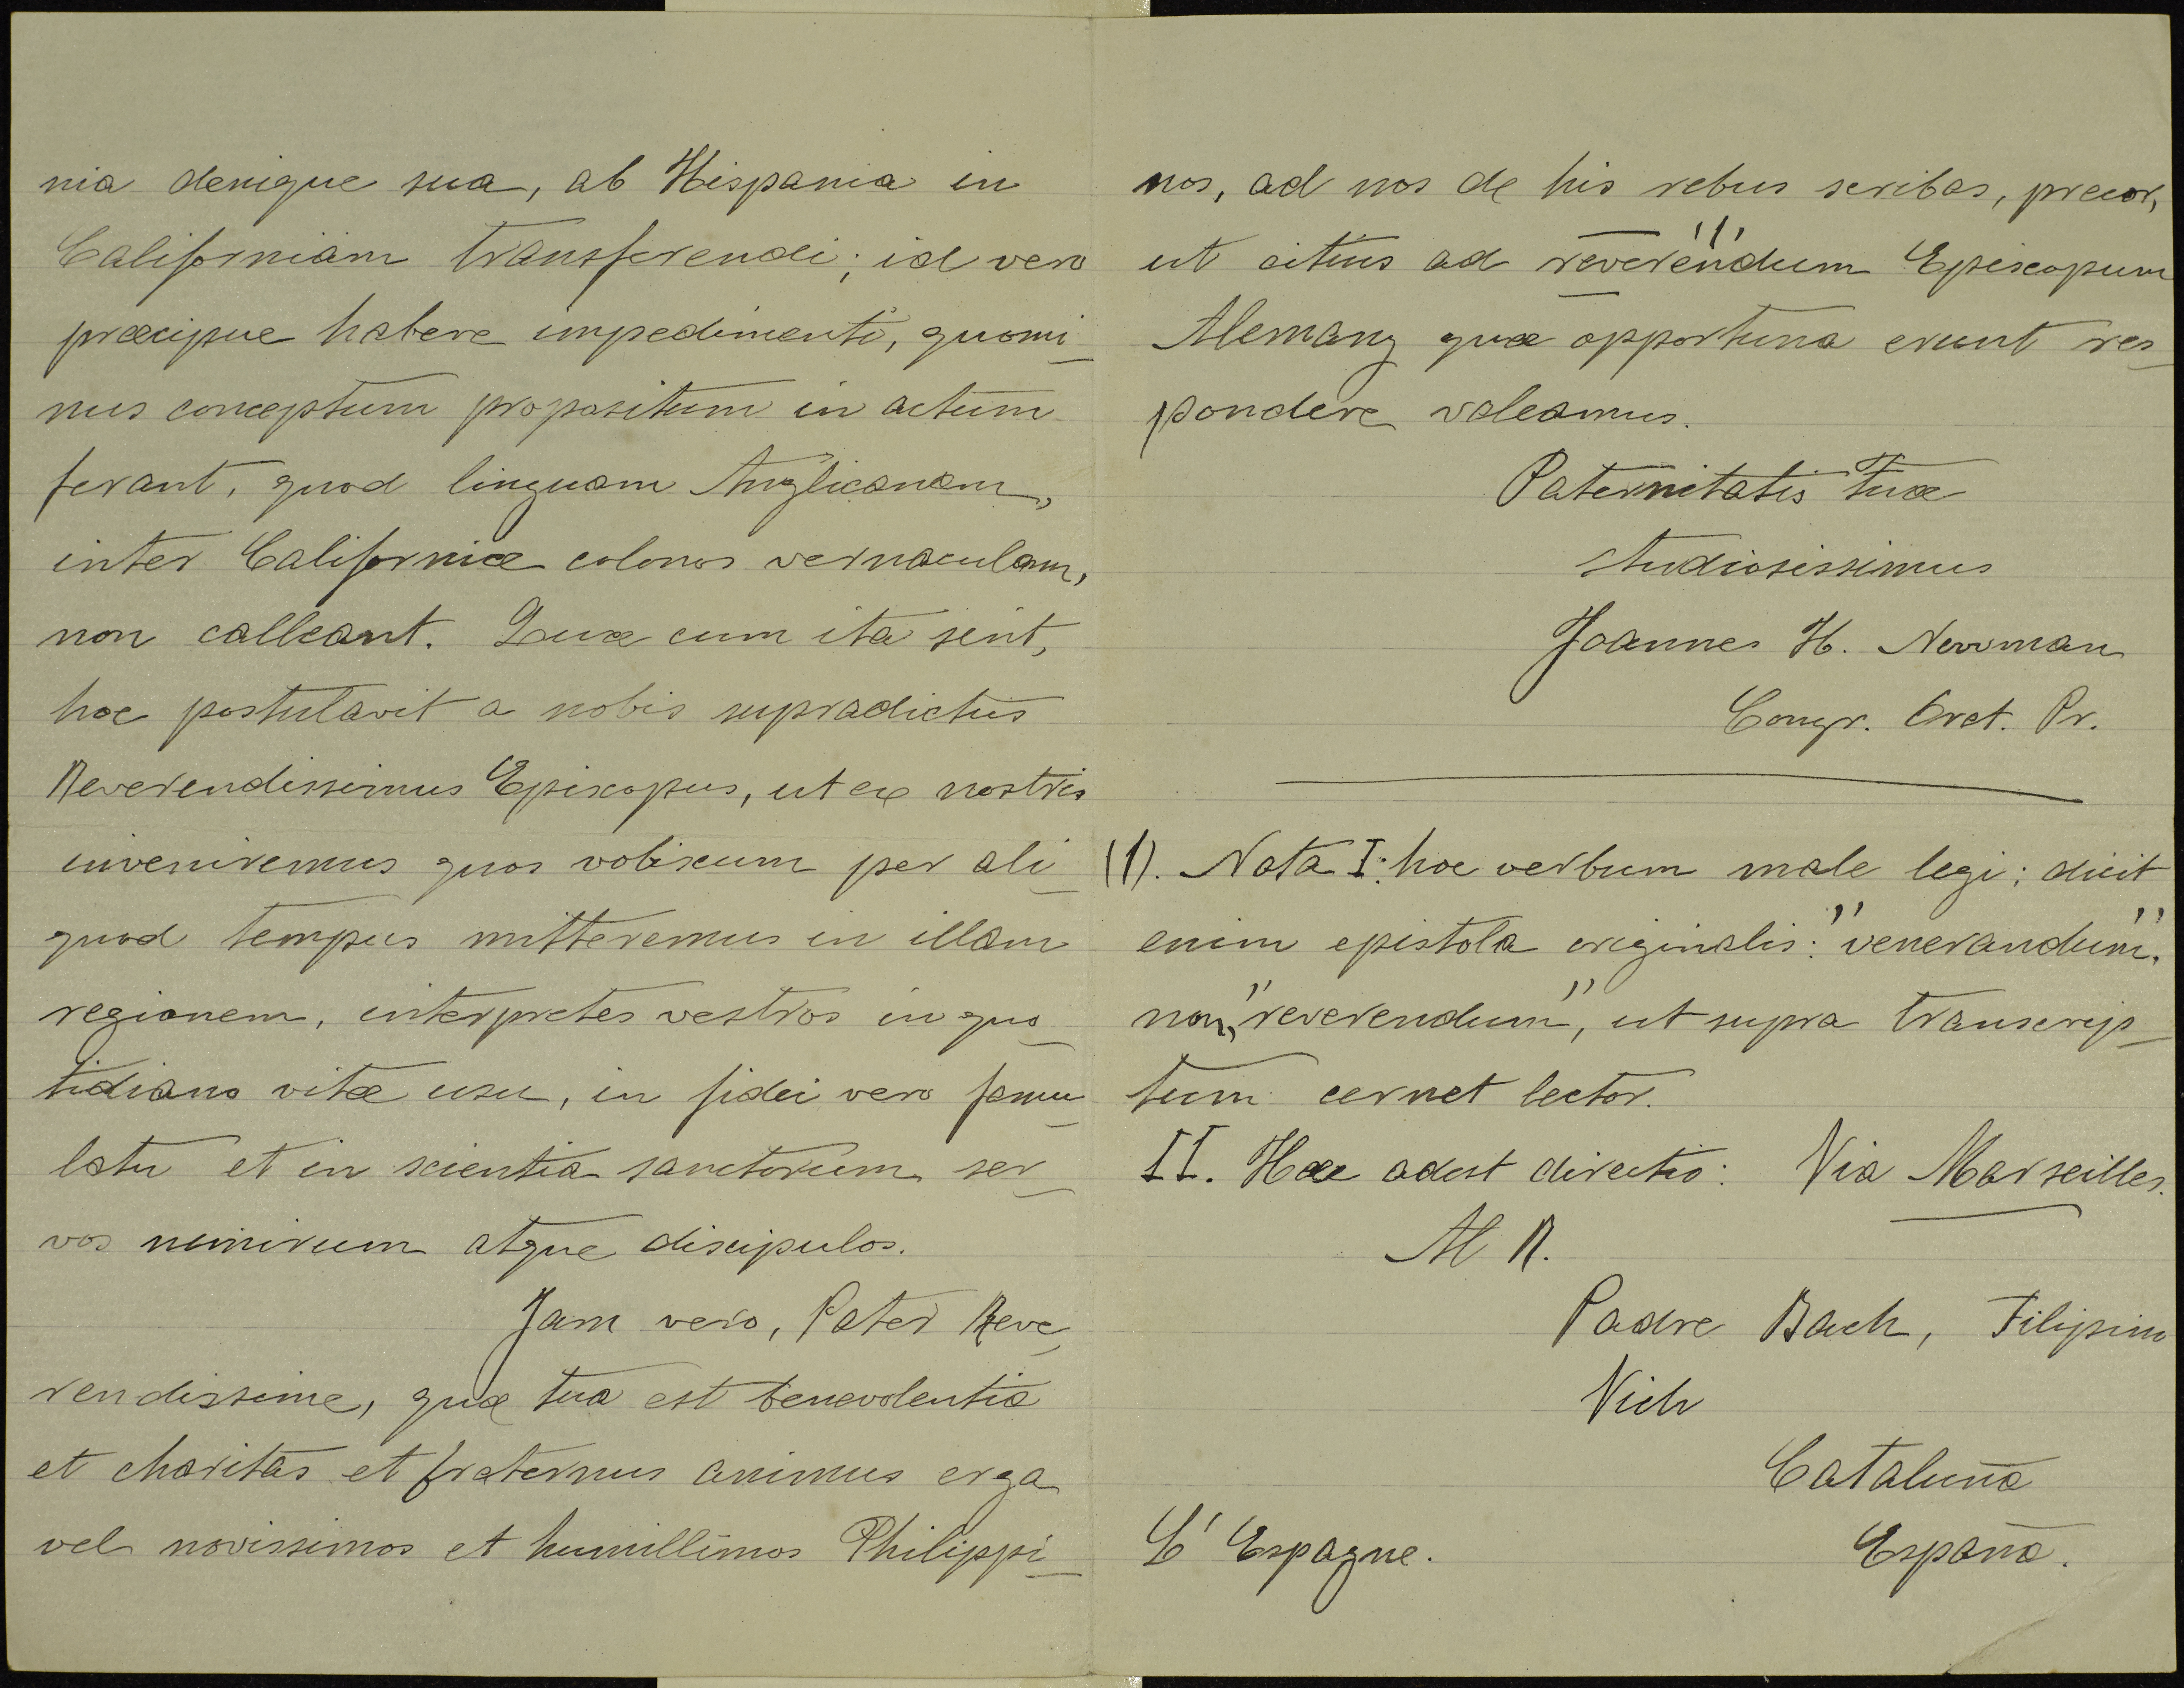 nia denique sua, ab Hispania in
Californiam transferendi; id vero
præcipue habere impedimenti, quomi-
nus conceptum propositum in actum
ferant, quod linguam Anglicanam,
inter Californiæ colonos vernaculam,
non calleant. Quæ cum ita sint,
hoc postulavit a nobis supradictus
Reverendissimus Episcopus, ut ex nostris
inveniremus quos vobiscum per ali-
quod tempus mitteremus in illam
regionem, interpretes vestros in quo-
tidiano vitæ usu, in fidei vero famu-
latu et in scientia sanctorum ser-
vos nimirum atque discipulos.
Jam vero, Pater Reve-
rendissime, quæ tua est benevolentia
et charitas et fraternus animus erga
vel novissimos et humillimos Philippi-
nos, ad nos de his rebus scribas, precor,
ut citius ad reverendum (1) Episcopum
Alemany quæ opportuna erunt res-
pondere valeamus.
Paternitatis tuæ
studiosissimus
Joannes H. Newman
Congr. Orat. Pr.
(1). Nota I: hoc verbum male legi; dicit
enim epistola originalis: "venerandum",
non, "reverendum", ut supra transcrip-
tum cernet lector.
II. Hæc adest directio: Via Marseilles.
Al R.
Padre Bach, Filipino
Vich
Cataluña
L'Espagne. España.